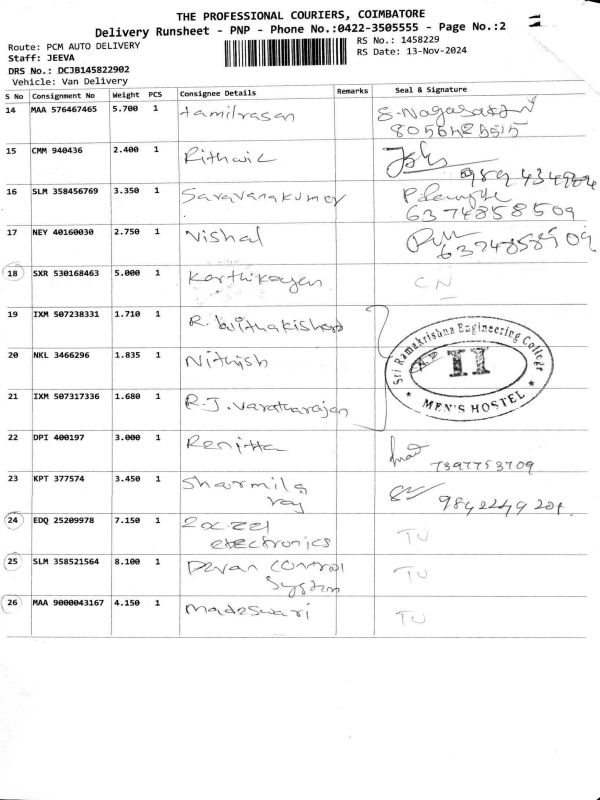 THE PROFESSIONAL COURIERS, COIMBATORE
Delivery Runsheet - PNP - Phone No.:0422-3505555 - Page No.:2
Route: PCM AUTO DELIVERY
RS No.: 1458229
Staff: JEEVA
RS Date: 13-Nov-2024
DRS No.: DCJB145822902
Vehicle: Van Delivery
S No Consignment No Weight PCS Consignee Details Remarks Seal & Signature
14 MAA 576467465 5.700 1 tamilrasan
15 CMM 940436 2.400 1 Rithwic
16 SLM 358456769 3.350 1 Saravanakumar
6374858509
17 NEY 40160030 2.750 1 Vishal
18 SXR 530168463 5.000 1 Karthikeyan CN
19 IXM 507238331 1.710 1 R.
20 NKL 3466296 1.835 1 Nithish
Sri Ramakrishna Engineering College
II
MEN'S HOSTEL
21 IXM 507317336 1.680 1 R.J. Varatharajan
22 DPI 400197 3.000 1 Renitta
7397753709
23 KPT 377574 3.450 1 Sharmila
24 EDQ 25209978 7.150 1
electronics TU
25 SLM 358521564 8.100 1 Devan control
System TU
26 MAA 9000043167 4.150 1 madeswari TU